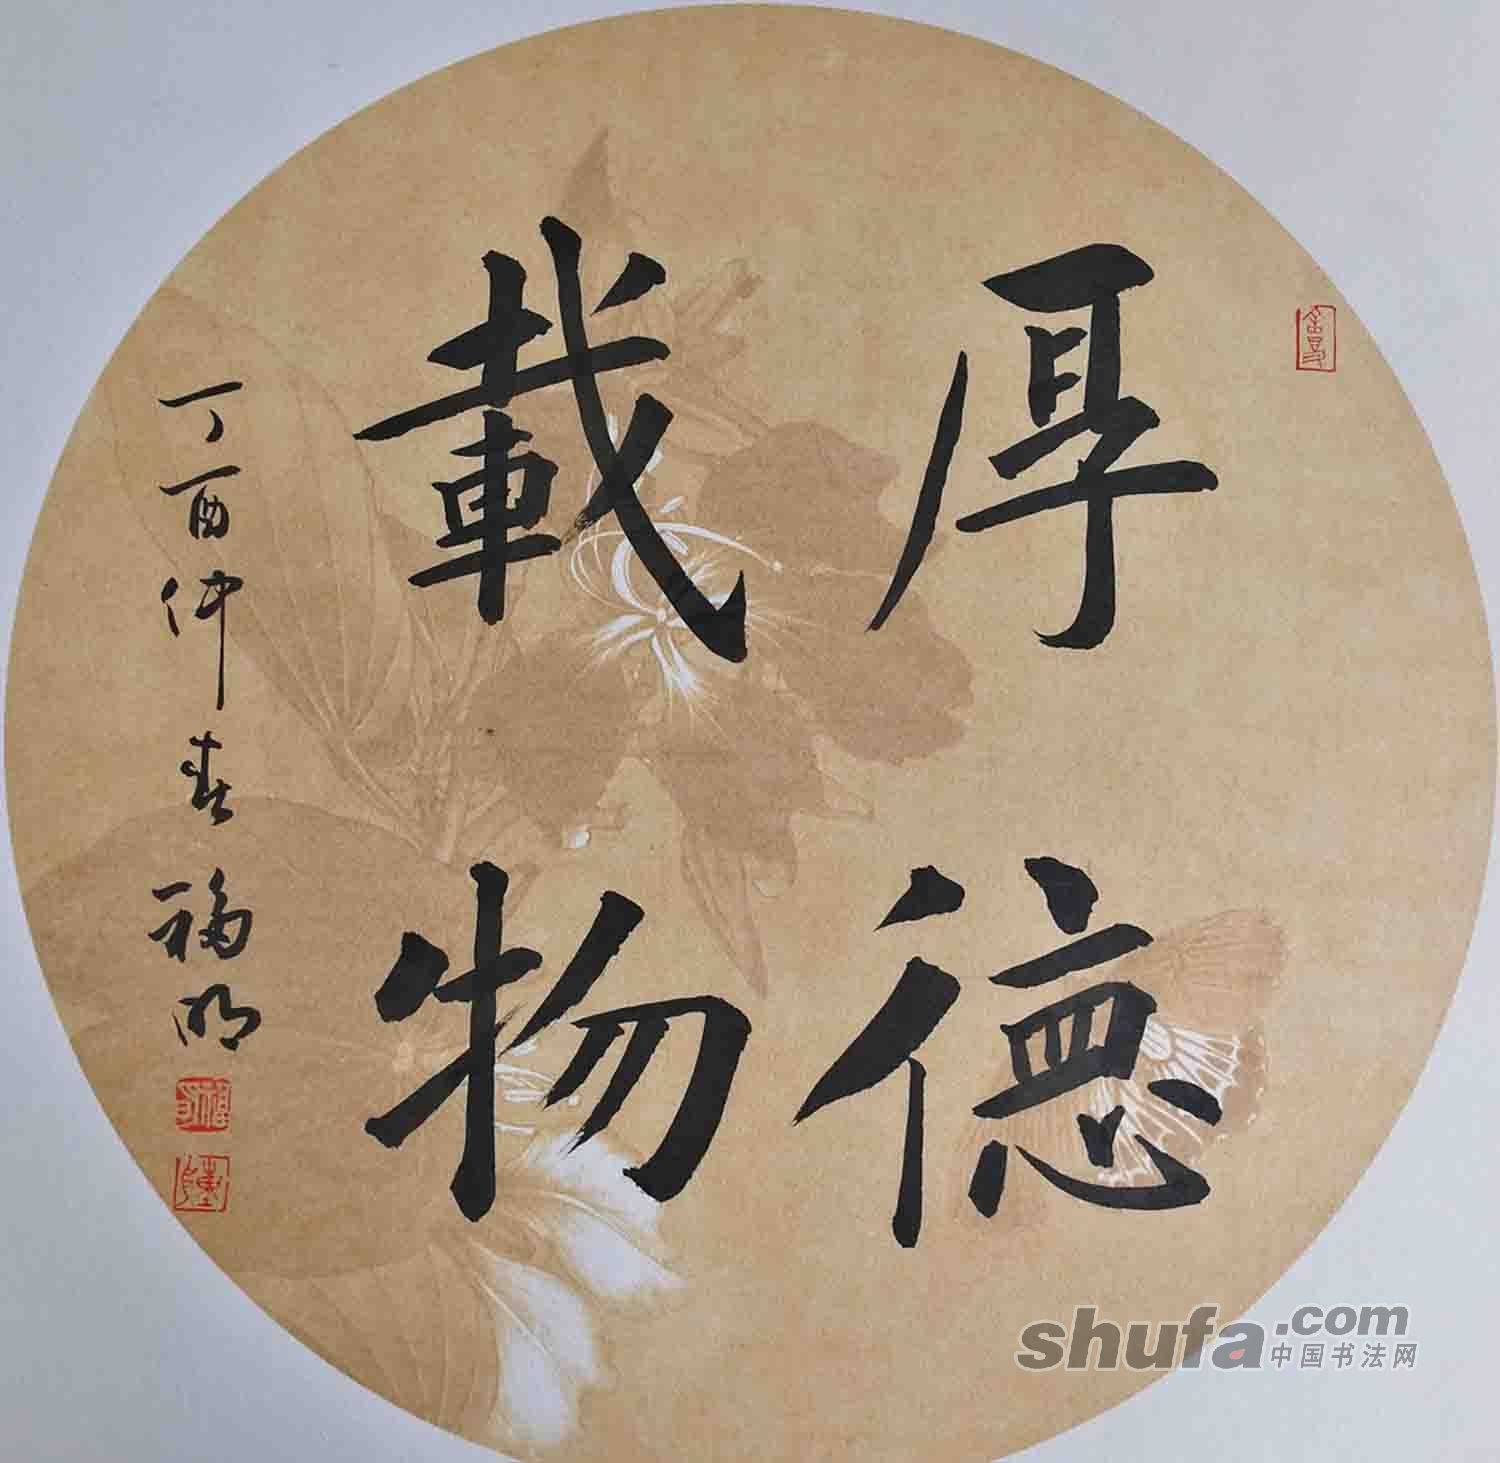 厚德
載物
丁酉仲春福明
shufa.com
中国书法网